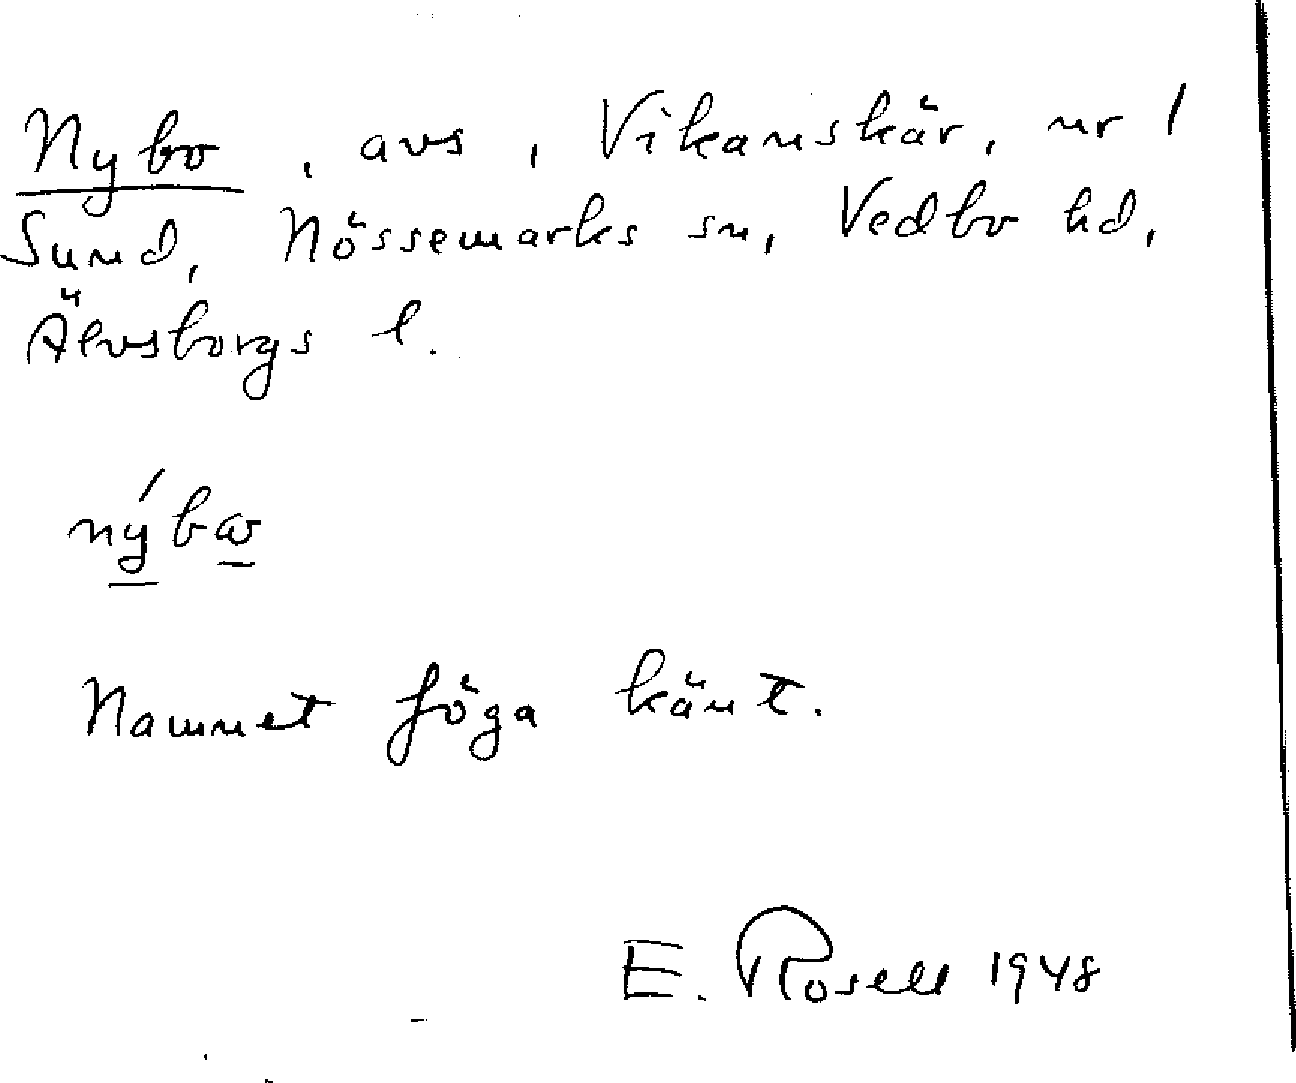 Nybo, avs, Vikanskär, nr 1
Sund, Nössemarks sn, Vedbo hd,
Älvsborgs l.
nýbω
Namnet föga känt.
E. Rosell 1948